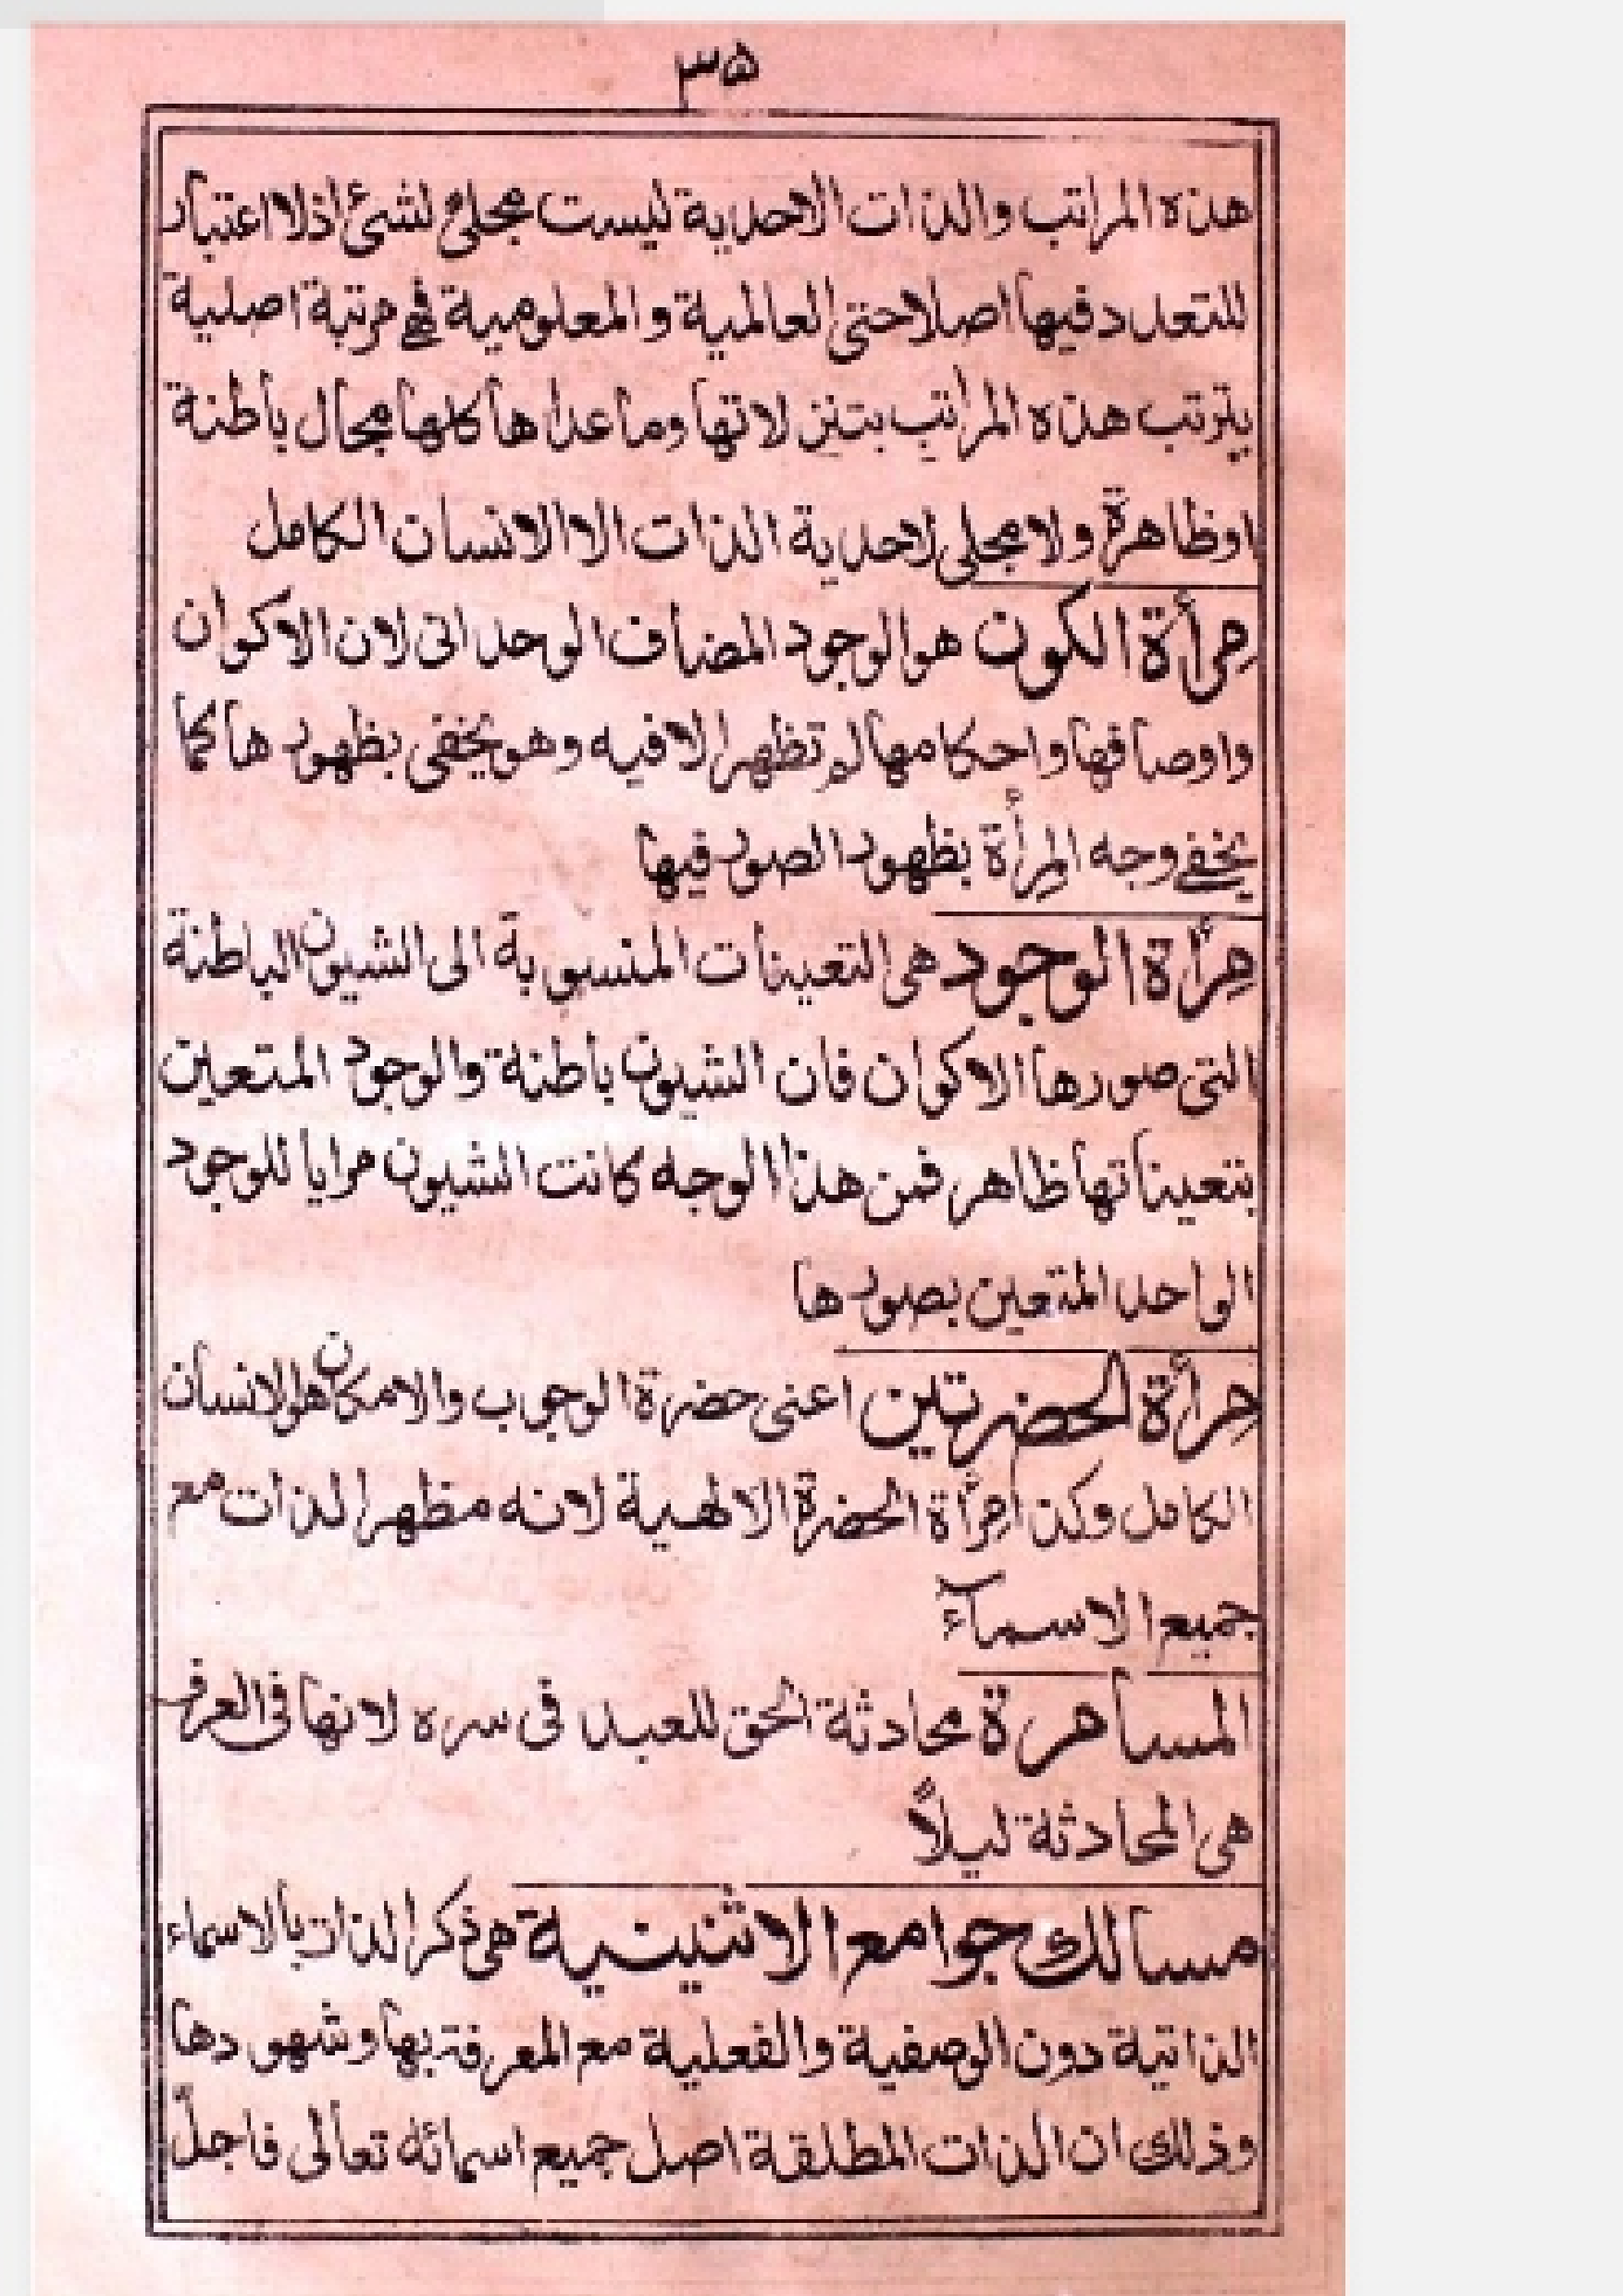 ٣٥
هذه المراتب والذات الاحدية ليست مجلىً لشئ اذلا اعتبار
للتعدد فيها اصلا حتى العالمية والمعلومية فهى مرتبة اصلية
يترتب هذه المراتب بتنزلاتها وما عداها كلها مجال باطنة
اوظاهرة ولا مجلى لاحدية الذات الا الانسان الكامل
مِرأة الكون هو الوجود المضاف الوحدانى لان الاكوان
واوصافها واحكامها لم تظهر الا فيه وهو يخفى بظهورها كما
يخفى وجه المِرأة بظهور الصور فيها
مِرأة الوجود هى التعينات المنسوبة الى الشيون الباطنة
التى صورها الاكوان فان الشيون باطنة والوجود المتعين
بتعيناتها ظاهر فمن هذا الوجه كانت الشيون مرايا للوجود
الواحد المتعين بصورها
مِرأة الحضرتين اعنى حضرة الوجوب والامكان هو الانسان
الكامل وكذا مِرأة الحضرة الالهية لانه مظهر الذات مع
جميع الاسمآء
المساهرة محادثة الحق للعبد فى سره لانها فى العرف
هى المحادثة ليلاً
مسالك جوامع الاثنينية هى ذكر الذات بالاسماء
الذاتية دون الوصفية والفعلية مع المعرفة بها وشهودها
وذلك ان الذات المطلقة اصل جميع اسمائه تعالى فاجلّ